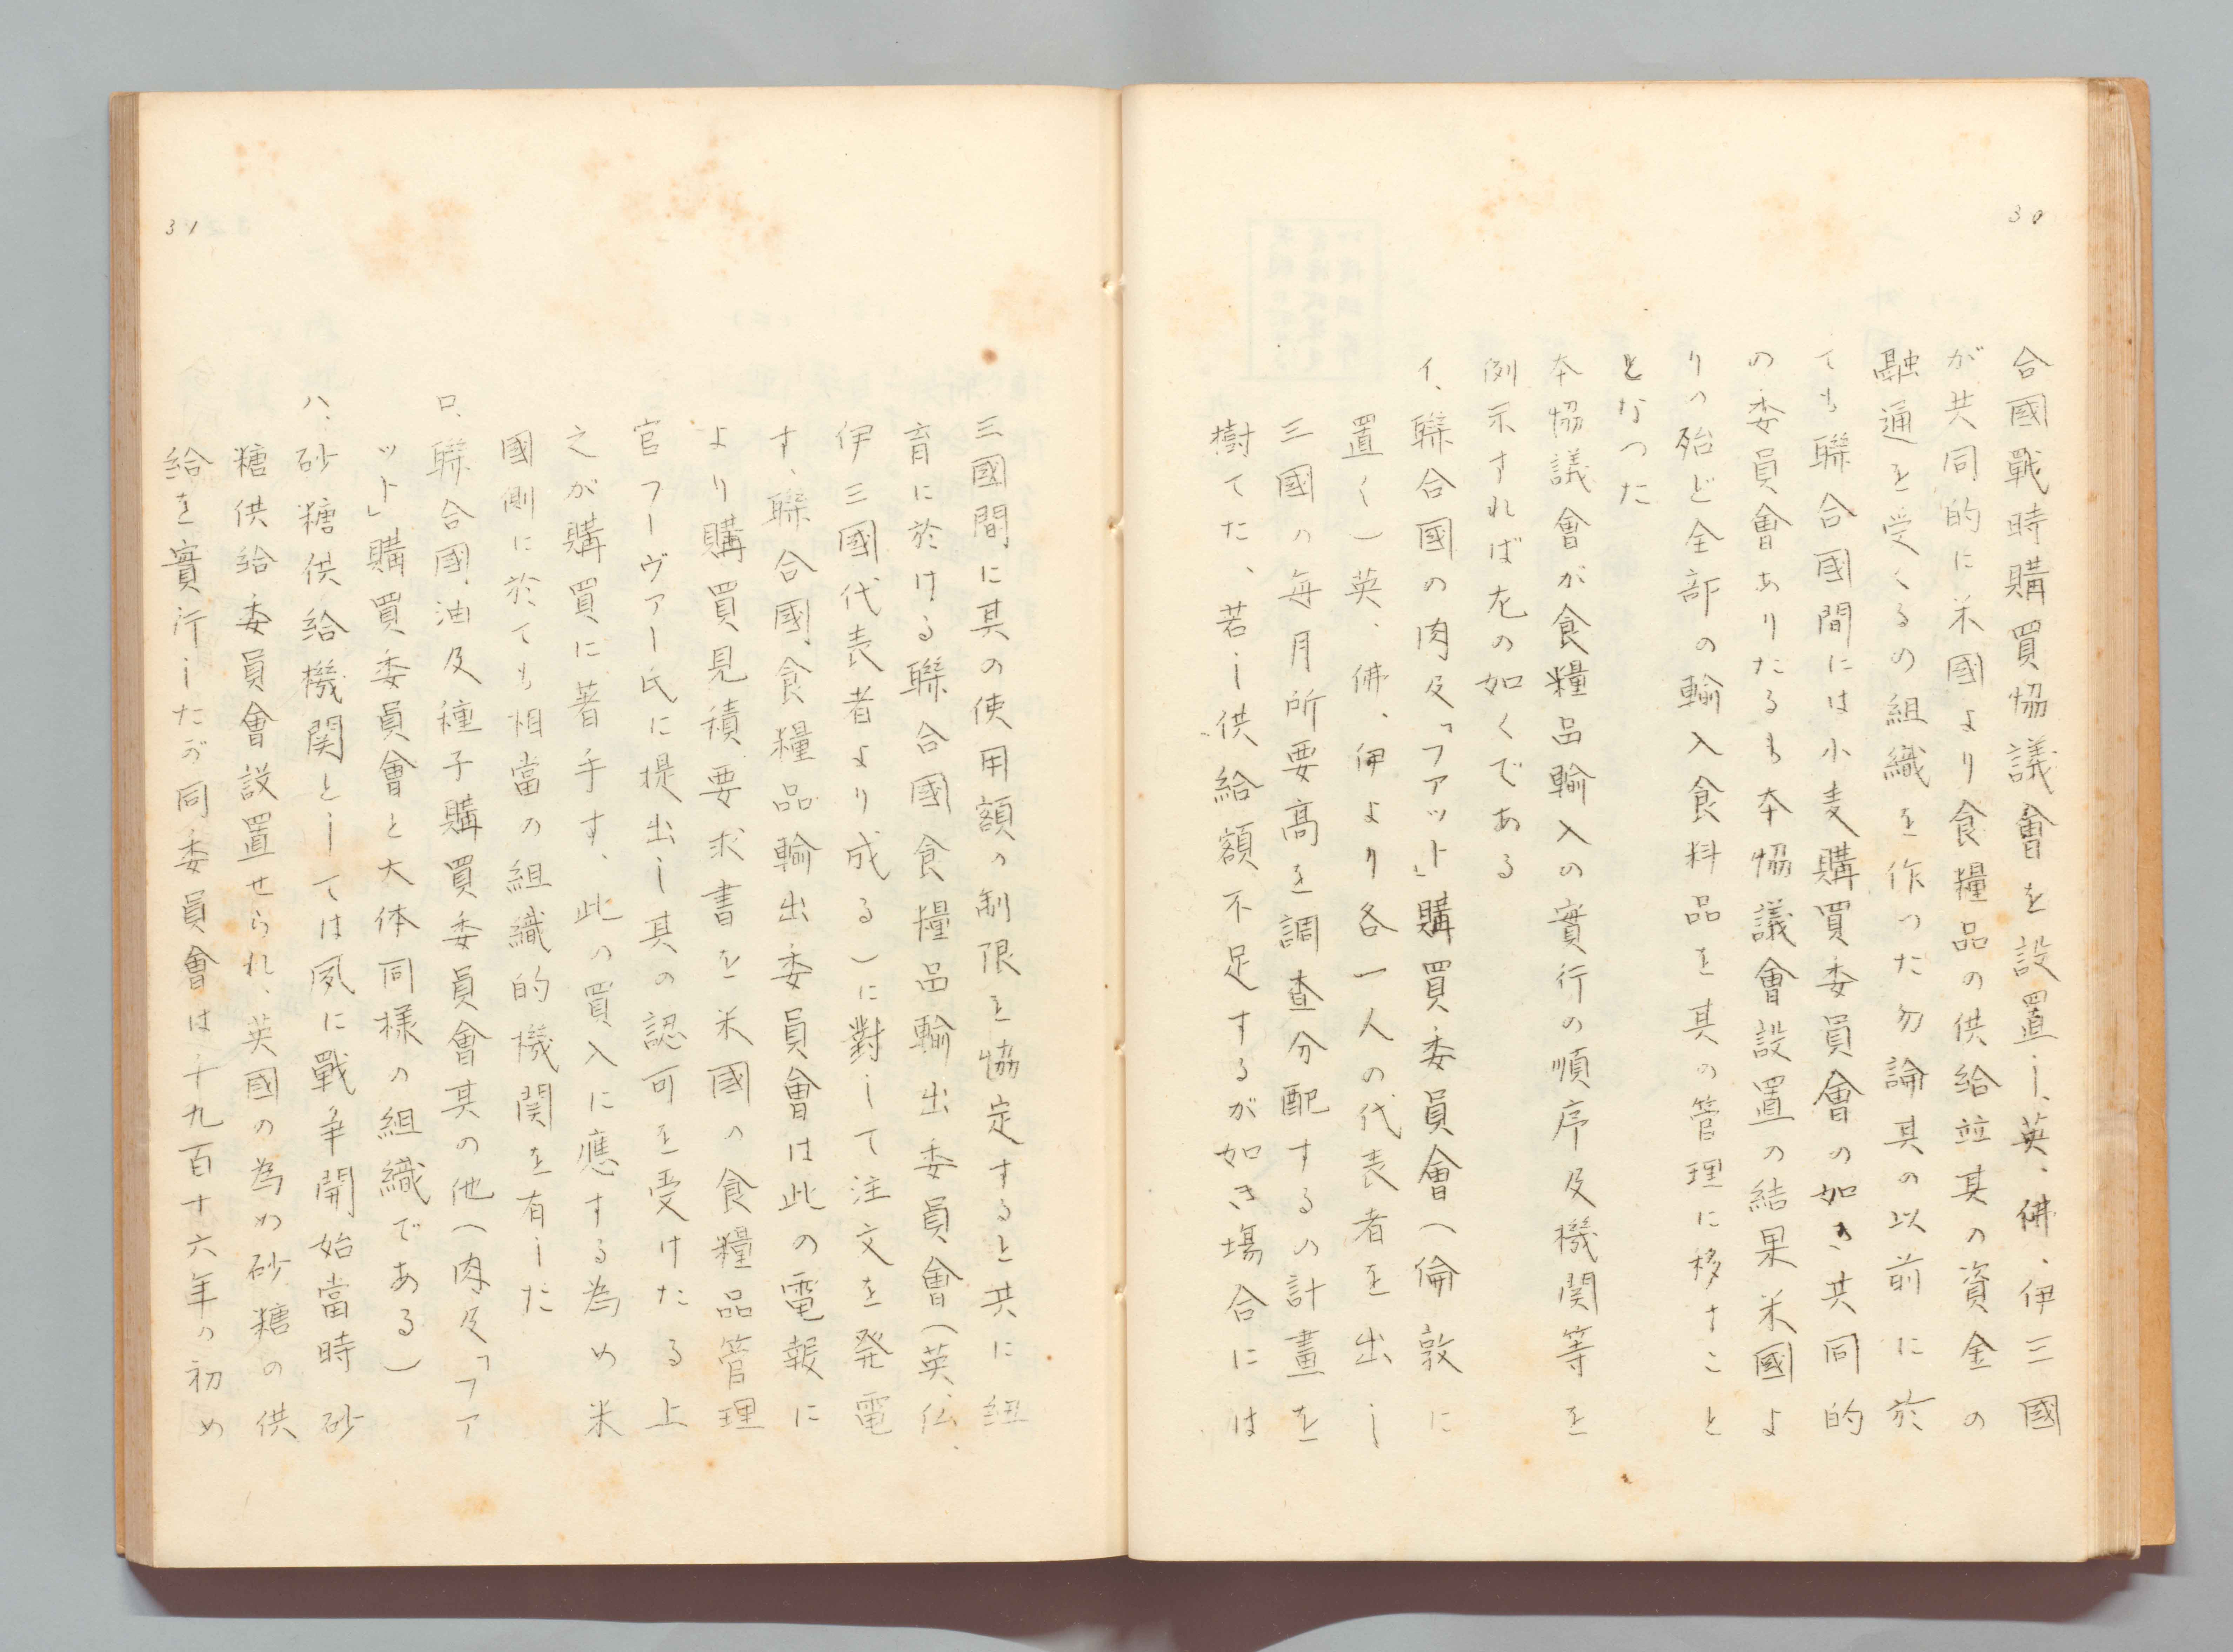 30
合國戰時購買協議會を設置し、英、佛、伊三國
が共同的に米國より食糧品の供給並其の資金の
融通を受くるの組織を作つた勿論其の以前に於
ても聯合國間には小麦購買委員會の如き共同的
の委員會ありたるも本協議會設置の結果米國よ
りの殆ど全部の輸入食料品を其の管理に移すこと
となつた
本協議會が食糧品輸入の實行の順序及機関等を
例示すれば左の如くである
イ、聯合國の肉及「ファット」購買委員會(倫敦に
置く)英、佛、伊より各一人の代表者を出し
三國の每月所要高を調査分配するの計畫を
樹てた、若し供給額不足するが如き場合には
31
三國間に其の使用額の制限を協定すると共に紐
育に於ける聯合國食糧品輸出委員會(英、仏、
伊三國代表者より成る)に對して注文を発電
す、聯合國食糧品輸出委員會は此の電報に
より購買見積要求書を米國の食糧品管理
官フーヴァー氏に提出し其の認可を受けたる上
之が購買に著手す、此の買入に應する為め米
國側に於ても相當の組織的機関を有した
ロ、聯合國油及種子購買委員會其の他(肉及「ファ
ット」購買委員會と大体同様の組織である)
ハ、砂糖供給機関としては夙に戰争開始當時砂
糖供給委員會設置せられ、英國の為め砂糖の供
給を實行したが同委員會は千九百十六年の初め